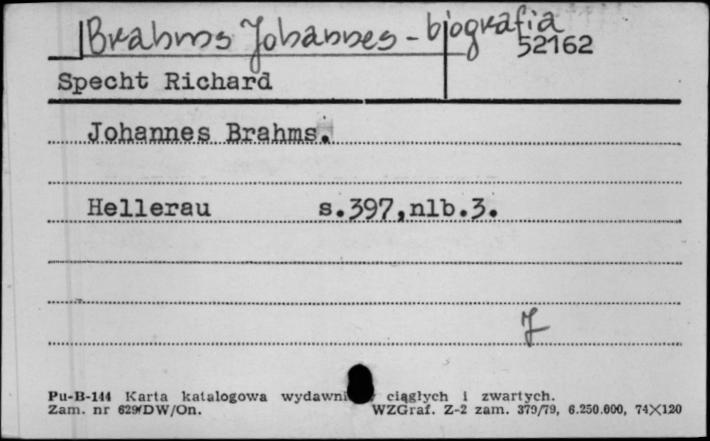 Brahms Johannes - biografia
52162
Specht Richard
Johannes Brahms.
Hellerau s.397,nlb.3.
Pu-B-144 Karta katalogowa ciągłych i zwartych.
Zam. nr WZGraf. Z-2 zam. 379/79, 6.250.000, 74×120